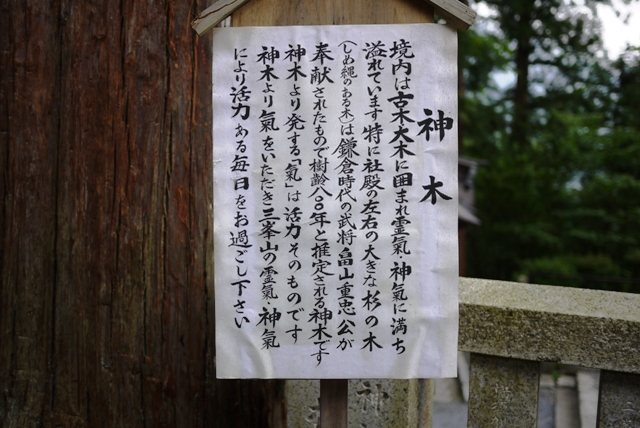 神木
境内は古木大木に囲まれ霊氣・神氣に満ち
溢れています特に社殿の左右の大きな杉の木
(しめ縄のある木)は鎌倉時代の武将畠山重忠公が
奉献されたもので樹齢八〇〇年と推定される神木です
神木より発する「氣」は活力そのものです
神木より氣をいただき三峯山の霊氣・神氣
により活力ある毎日をお過ごし下さい
神